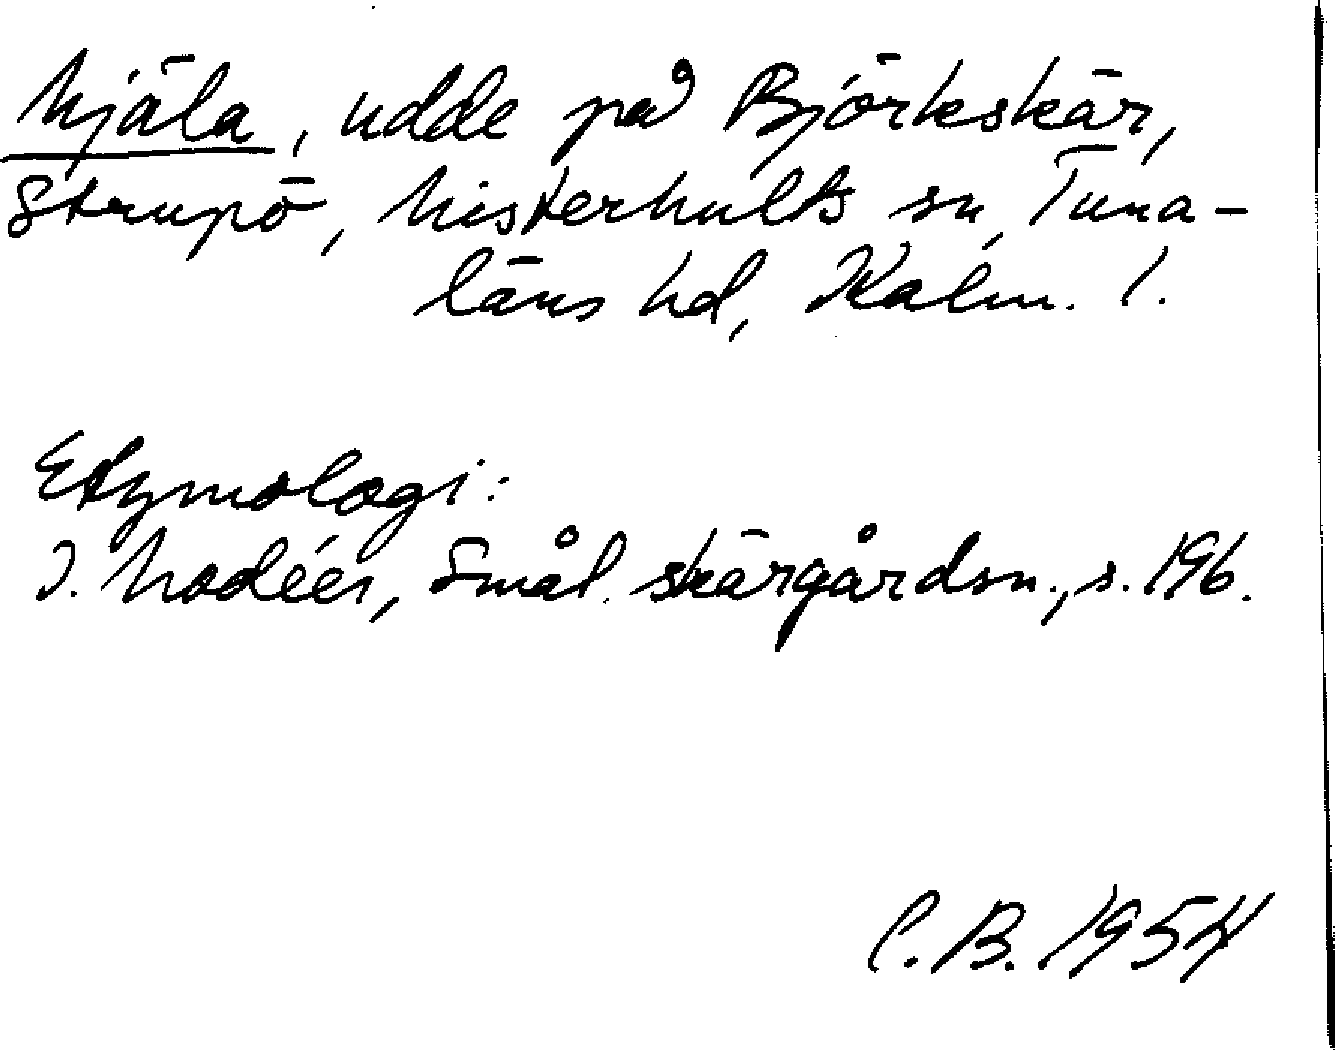 Mjäla, udde på Björkskär,
Strupö, Misterhults sn, Tuna-
läns hd, Kalm. l.
Etymologi:
I. Modéer, Smål. skärgårdsn., s. 196.
C. B. 1954